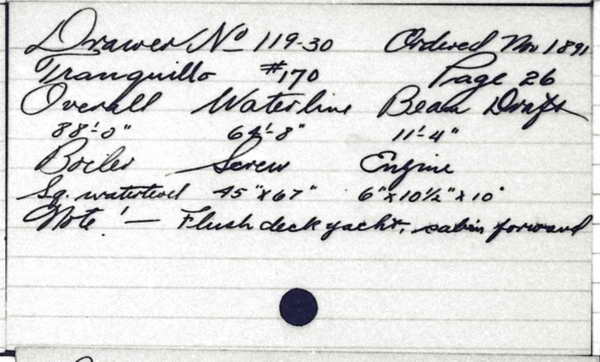 Drawer No 119-30 Ordered Nov 1891
Tranquillo #170 Page 26
Overall Waterline Beam Draft
88'-0" 64'-8" 11'-4"
Boiler Screw Engine
Sq. watertend 45" x 67" 6" x 10½" x 10"
Note! — Flush deck yacht, cabin forward